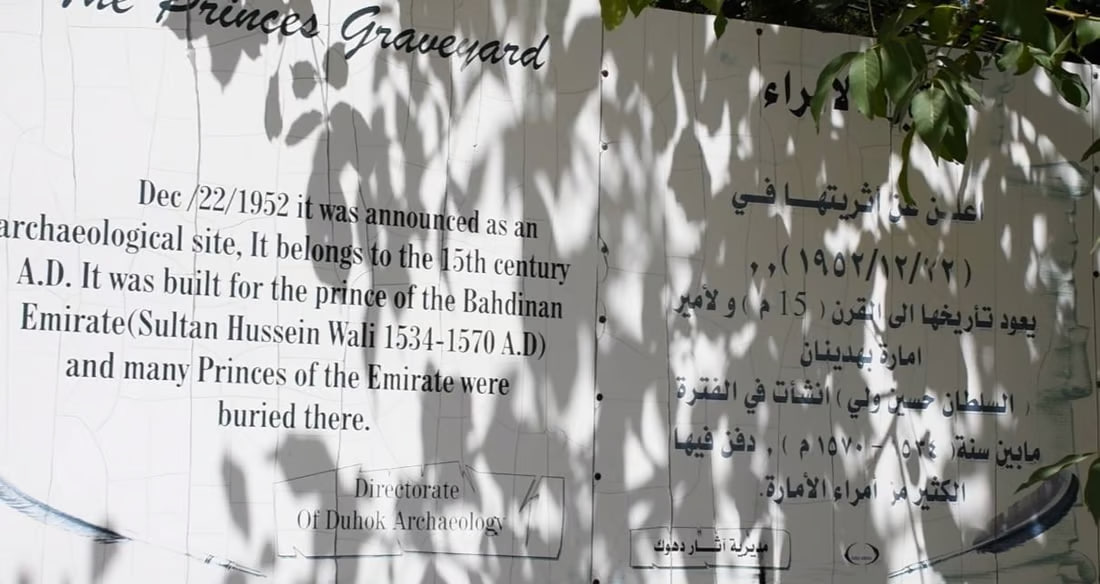 The Princes Graveyard
Dec /22/1952 it was announced as an
archaeological site, It belongs to the 15th century
A.D. It was built for the prince of the Bahdinan
Emirate(Sultan Hussein Wali 1534-1570 A.D)
and many Princes of the Emirate were
buried there.
Directorate
Of Duhok Archaeology
اعلــن عن أثريتهــا فــي
(١٩٥٢/١٢/٢٢),,
يعود تأريخها الى القرن ( 15 م ) و لأمير
امارة بهدينان
( السلطان حسين ولي ) انشأت في الفترة
مابين سنة( ١٥٣٤ - ١٥٧٠ م ) , دفن فيها
الكثير من أمراء الأمارة.
مديرية آثــار دهوك